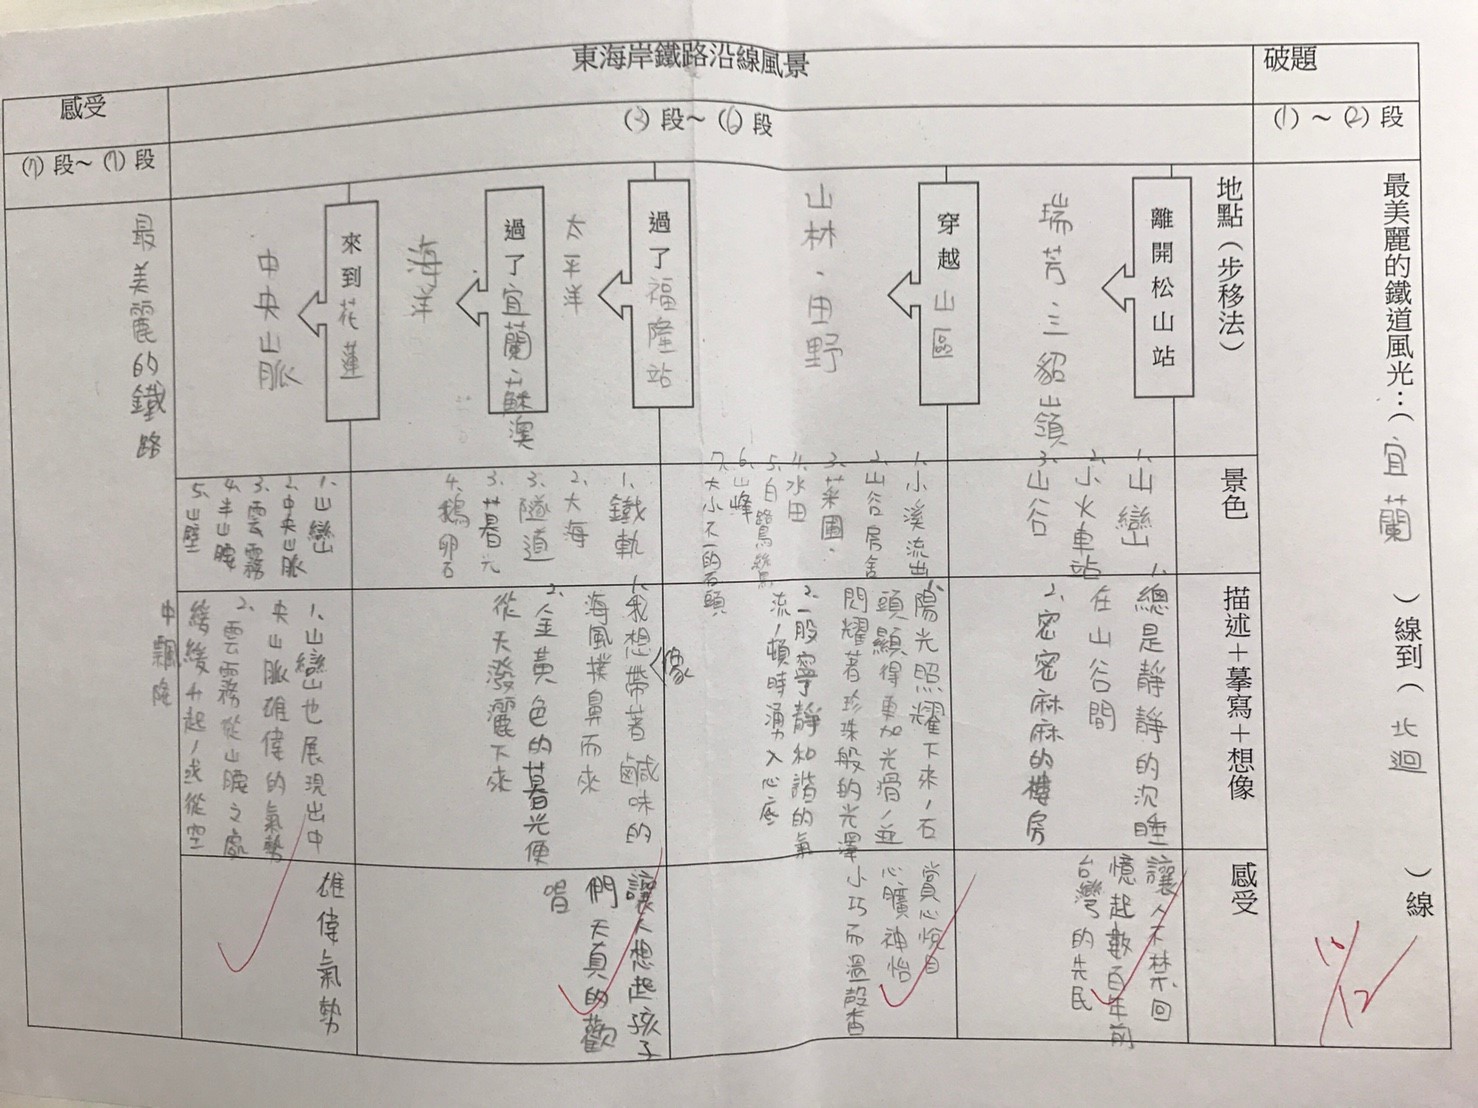 東海岸鐵路沿線風景
破題
(1)～(2)段
最美麗的鐵道風光：(宜蘭)線到(北迴)線
10/12
(3)段～(6)段
地點(步移法)
景色
描述＋摹寫＋想像
感受
離開松山站
瑞芳、三貂嶺
1、山巒
2、小火車站
3、山谷
1、總是靜靜的沉睡
在山谷間
2、密密麻麻的樓房
讓人不禁回
憶起數百年前
台灣的先民
穿越山區
山林、田野
1、小溪流出
2、山谷房舍
3、菜圃、
4、水田
5、白鷺鷥
6、山峰
7、大小不一的石頭
陽光照耀下來，石
頭顯得更加光滑，並
閃耀著珍珠般的光澤
2、一股寧靜和諧的氣
流，頓時湧入心底
賞心悅目
心曠神怡
小巧而溫馨
過了福隆站
太平洋
過了宜蘭、蘇澳
海洋
1、鐵軌
2、大海
3、隧道
3、暮光
4、鵝卵石
1、我想帶著鹹味的
像
海風撲鼻而來
2、金黃色的暮光便
從天潑灑下來
讓人想起孩子
們天真的歡
唱
來到花蓮
中央山脈
1、山巒
2、中央山脈
3、雲霧
4、半山腰
5、山壁
1、山巒也展現出中
央山脈雄偉的氣勢
2、雲霧從山腰之處
緩緩升起，或從空
中飄降
雄偉氣勢
感受
(7)段～(7)段
最美麗的鐵路